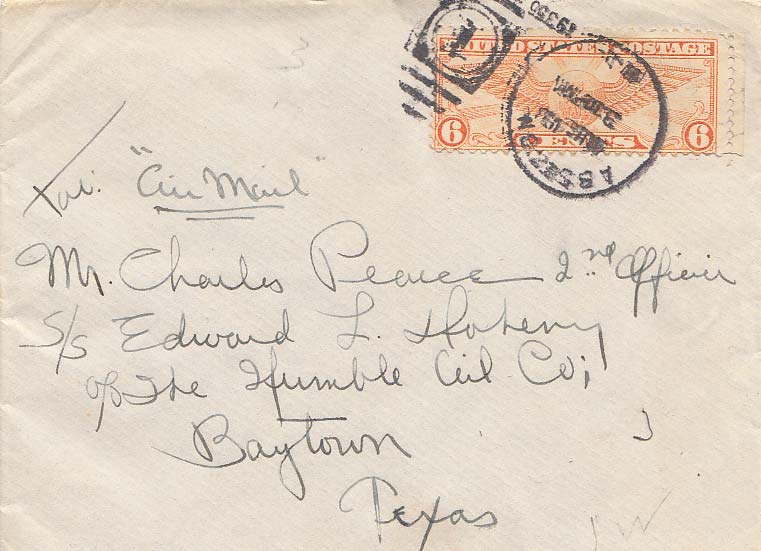 UNITED STATES POSTAGE
6 CENTS 6
ABSECON
Via: "Air Mail"
Mr. Charles Pearce 2nd Officer
S/S Edward L. Doheny
c/o The Humble Oil Co;
Baytown
Texas